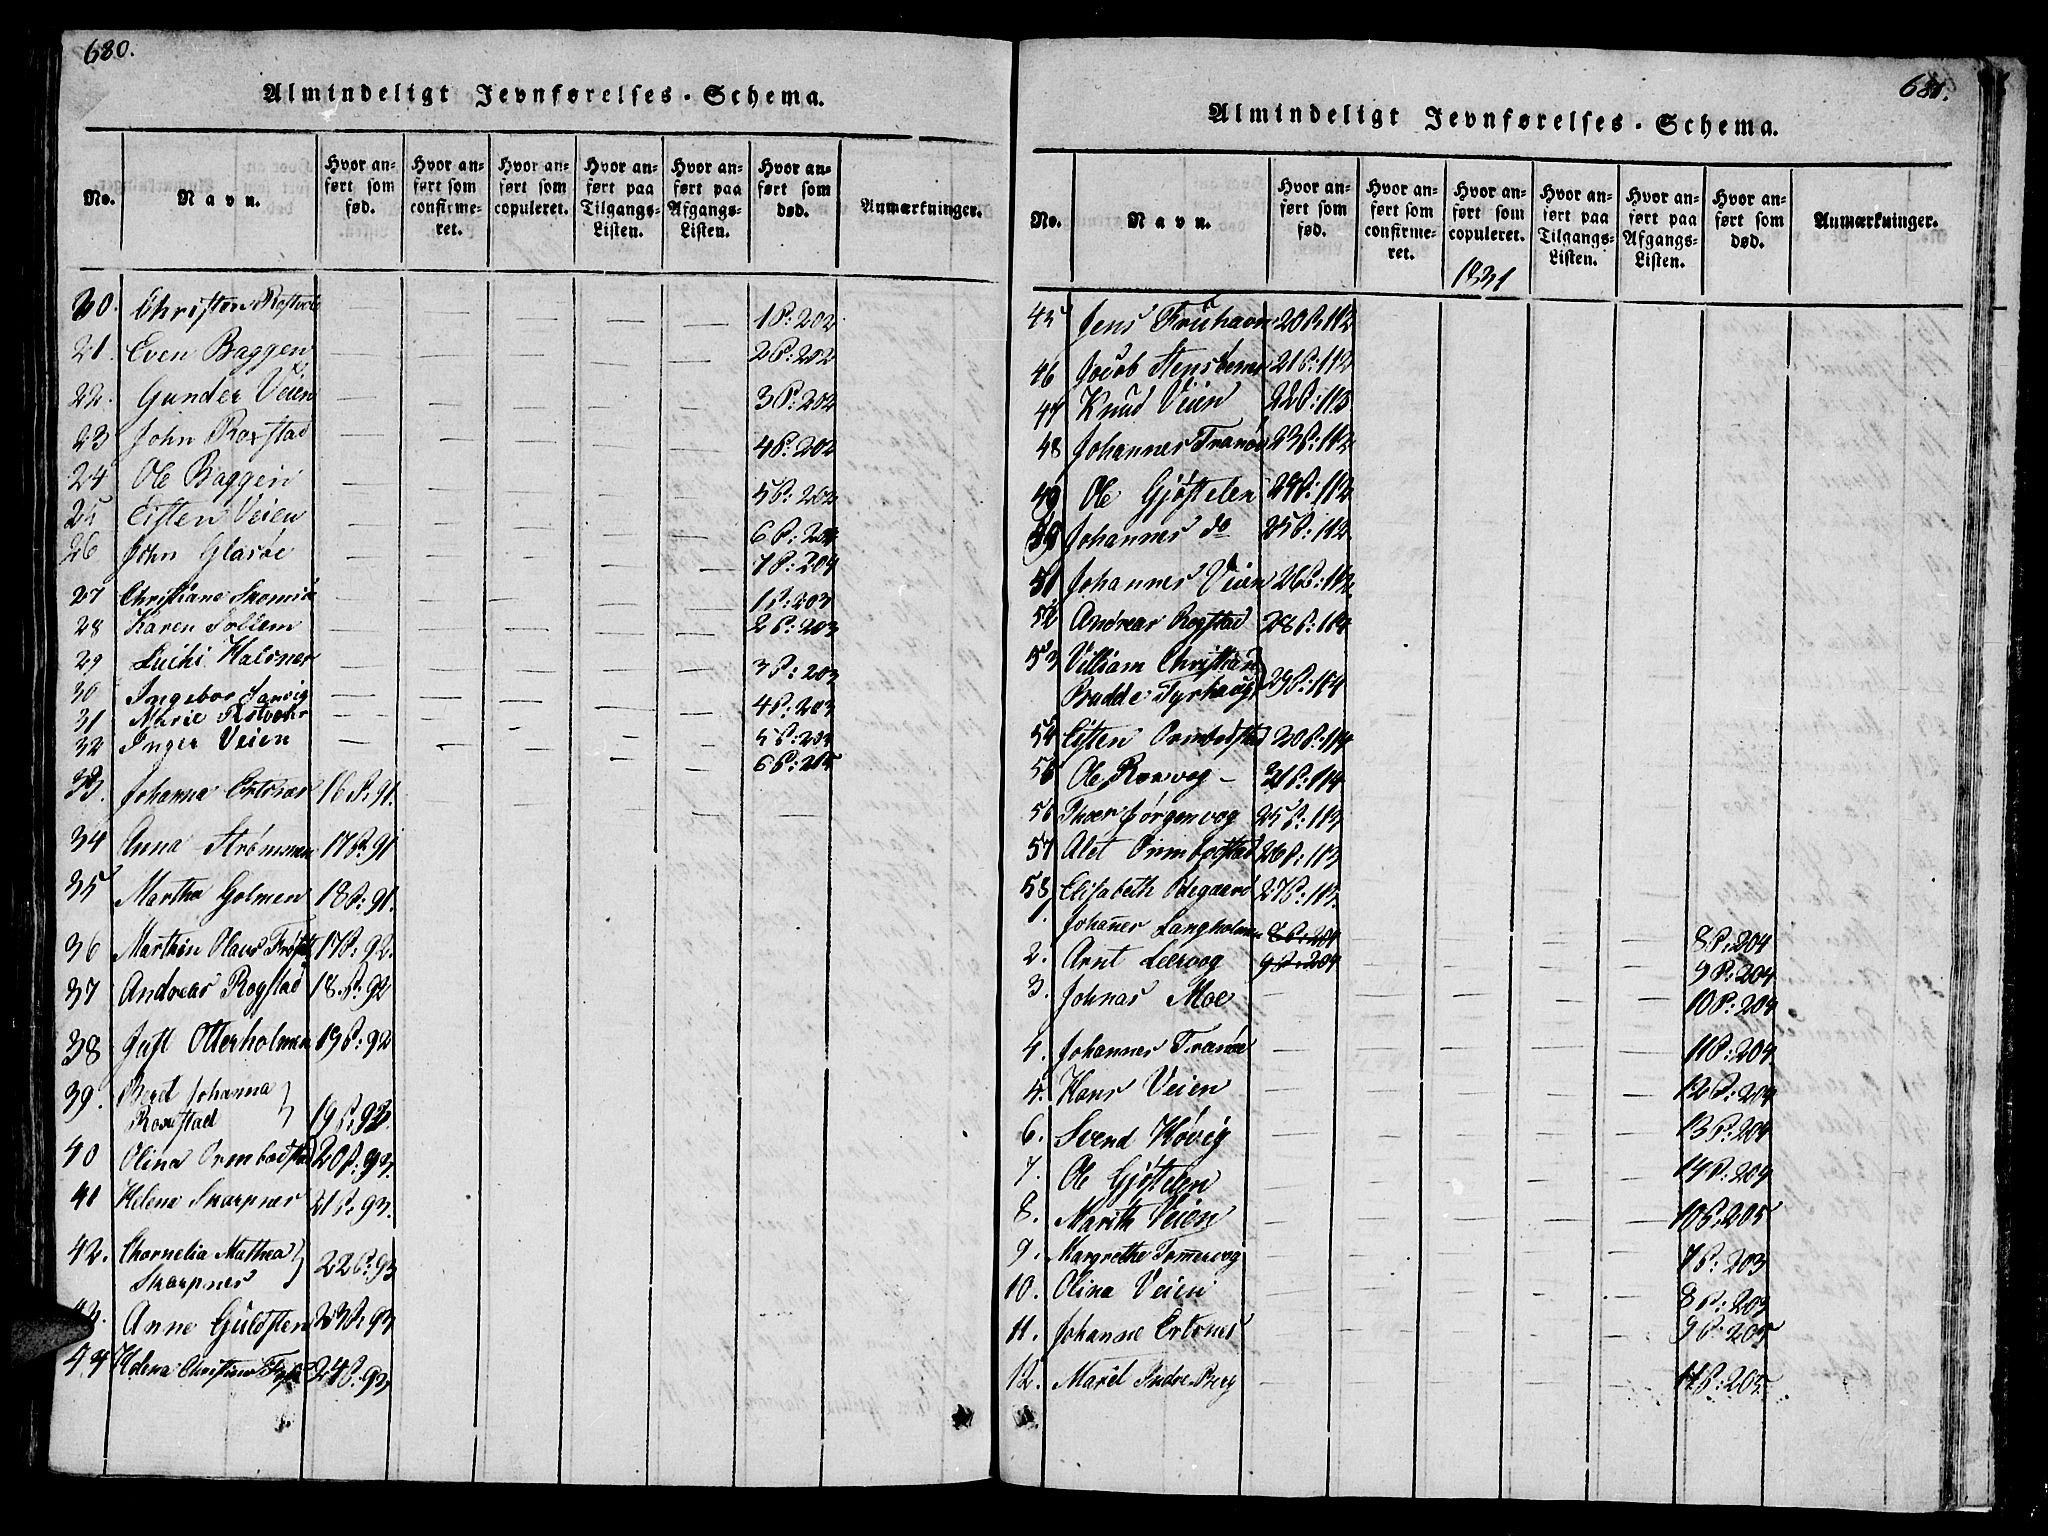 680.
Almindeligt Jevnførelses-Schema.
No. Navn. Hvor anført som fød. Hvor anført som confirmeret. Hvor anført som copuleret. Hvor anført paa Tilgangs-Listen. Hvor anført paa Afgangs-Listen. Hvor anført som død. Anmærkninger.
20. Christen — — — — — 1 P: 202
21. Even Baggen — — — — — 2 P: 202
22. Gunder Veien — — — — — 3 P: 202
23 John Roxstad — — — — — 4 P: 202
24 Ole Baggen — — — — — 5 P: 202
25 Eisten Veien — — — — — 6 P: 204
26 John Glasöe — — — — — 7 P: 204
27 Christiane — — — — — 1 P: 203
28 Karen Sollem — — — — — 2 P: 203
29 — — — — — 3 P: 203
30 Ingebor — — — — — 4 P: 203
31 Marie — — — — — 5 P: 203
32 Inger Veien — — — — — 6 P: 205
33. Johanna Ertvaer 16 P: 91.
34 Anna Strömmen 17 P: 91
35 Martha Golmen 18 P: 91.
36 Marthin Olaus 17 P: 92.
37 Andreas Rogstad 18 P: 92
38 Just Otterholmen 19 P: 92
39. Berel Johanna }
Roxstad 19 P: 93
40 Olina Ormbodstad 20 P: 93
41 Helena Skarpnes 21 P: 93.
42. Chornelia Mathea }
Skarpnes 22 P: 93
43. Anne Guldsten 23 P: 93
44 Helena Christine 24 P: 93
681.
Almindeligt Jevnførelses-Schema.
No. Navn. Hvor anført som fød. Hvor anført som confirmeret. Hvor anført som copuleret. Hvor anført paa Tilgangs-Listen. Hvor anført paa Afgangs-Listen. Hvor anført som død. Anmærkninger.
1831
45 Jens Fruhavn 20 P: 112
46 Jacob 21 P: 112
47 Knud Veien 22 P: 113
48 Johannes Tranöe 23 P: 112
49 Ole Gjöstelen 24 P: 112
50 Johannes do 25 P: 112
51 Johannes Veien 26 P: 112
52 Andreas Rogstad 28 P: 114
53 Villiam Christian }
Budde Tyrhaug 29 P: 114
54 Eisten Ormbodstad 20 P: 114
55 Ole Ronvog — 31 P: 114
56 Jörgenvog 25 P: 113
57 Alet Ormbodstad 26 P: 113
58 Elisabeth Ödegaard 27 P: 113.
1. Johannes Langholmen 8 P: 204 8 P: 204
2. Arnt Leervog 9 P: 204 9 P: 204
3. Johnas Moe — — — — — 10 P: 204
4. Johannes Tranöe — — — — — 11 P: 204
4. Hans Veien — — — — — 12 P: 204
6. Svend Hövig — — — — — 13 P: 204
7. Ole Gjöstelen — — — — — 14 P: 204
8. Marith Veien — — — — — 10 P: 205
9. Margrethe Tömmervog — — — — — 7 P: 203
10. Olina Veien — — — — — 8 P: 203
11. Johanne Ertvaer — — — — — 9 P: 205
12. Marel Indre Berg — — — — — 11 P: 205